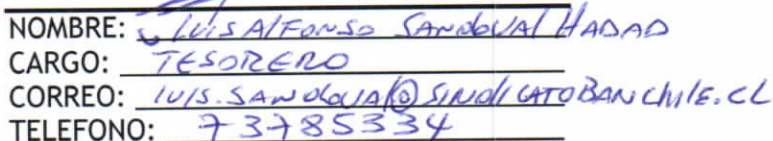 NOMBRE: LUIS AlFONSO SANDOVAl HADAD
CARGO: TESORERO
CORREO: lUIS.SANDOVAl@SINDICATOBANCHIlE.CL
TELEFONO: 73785334